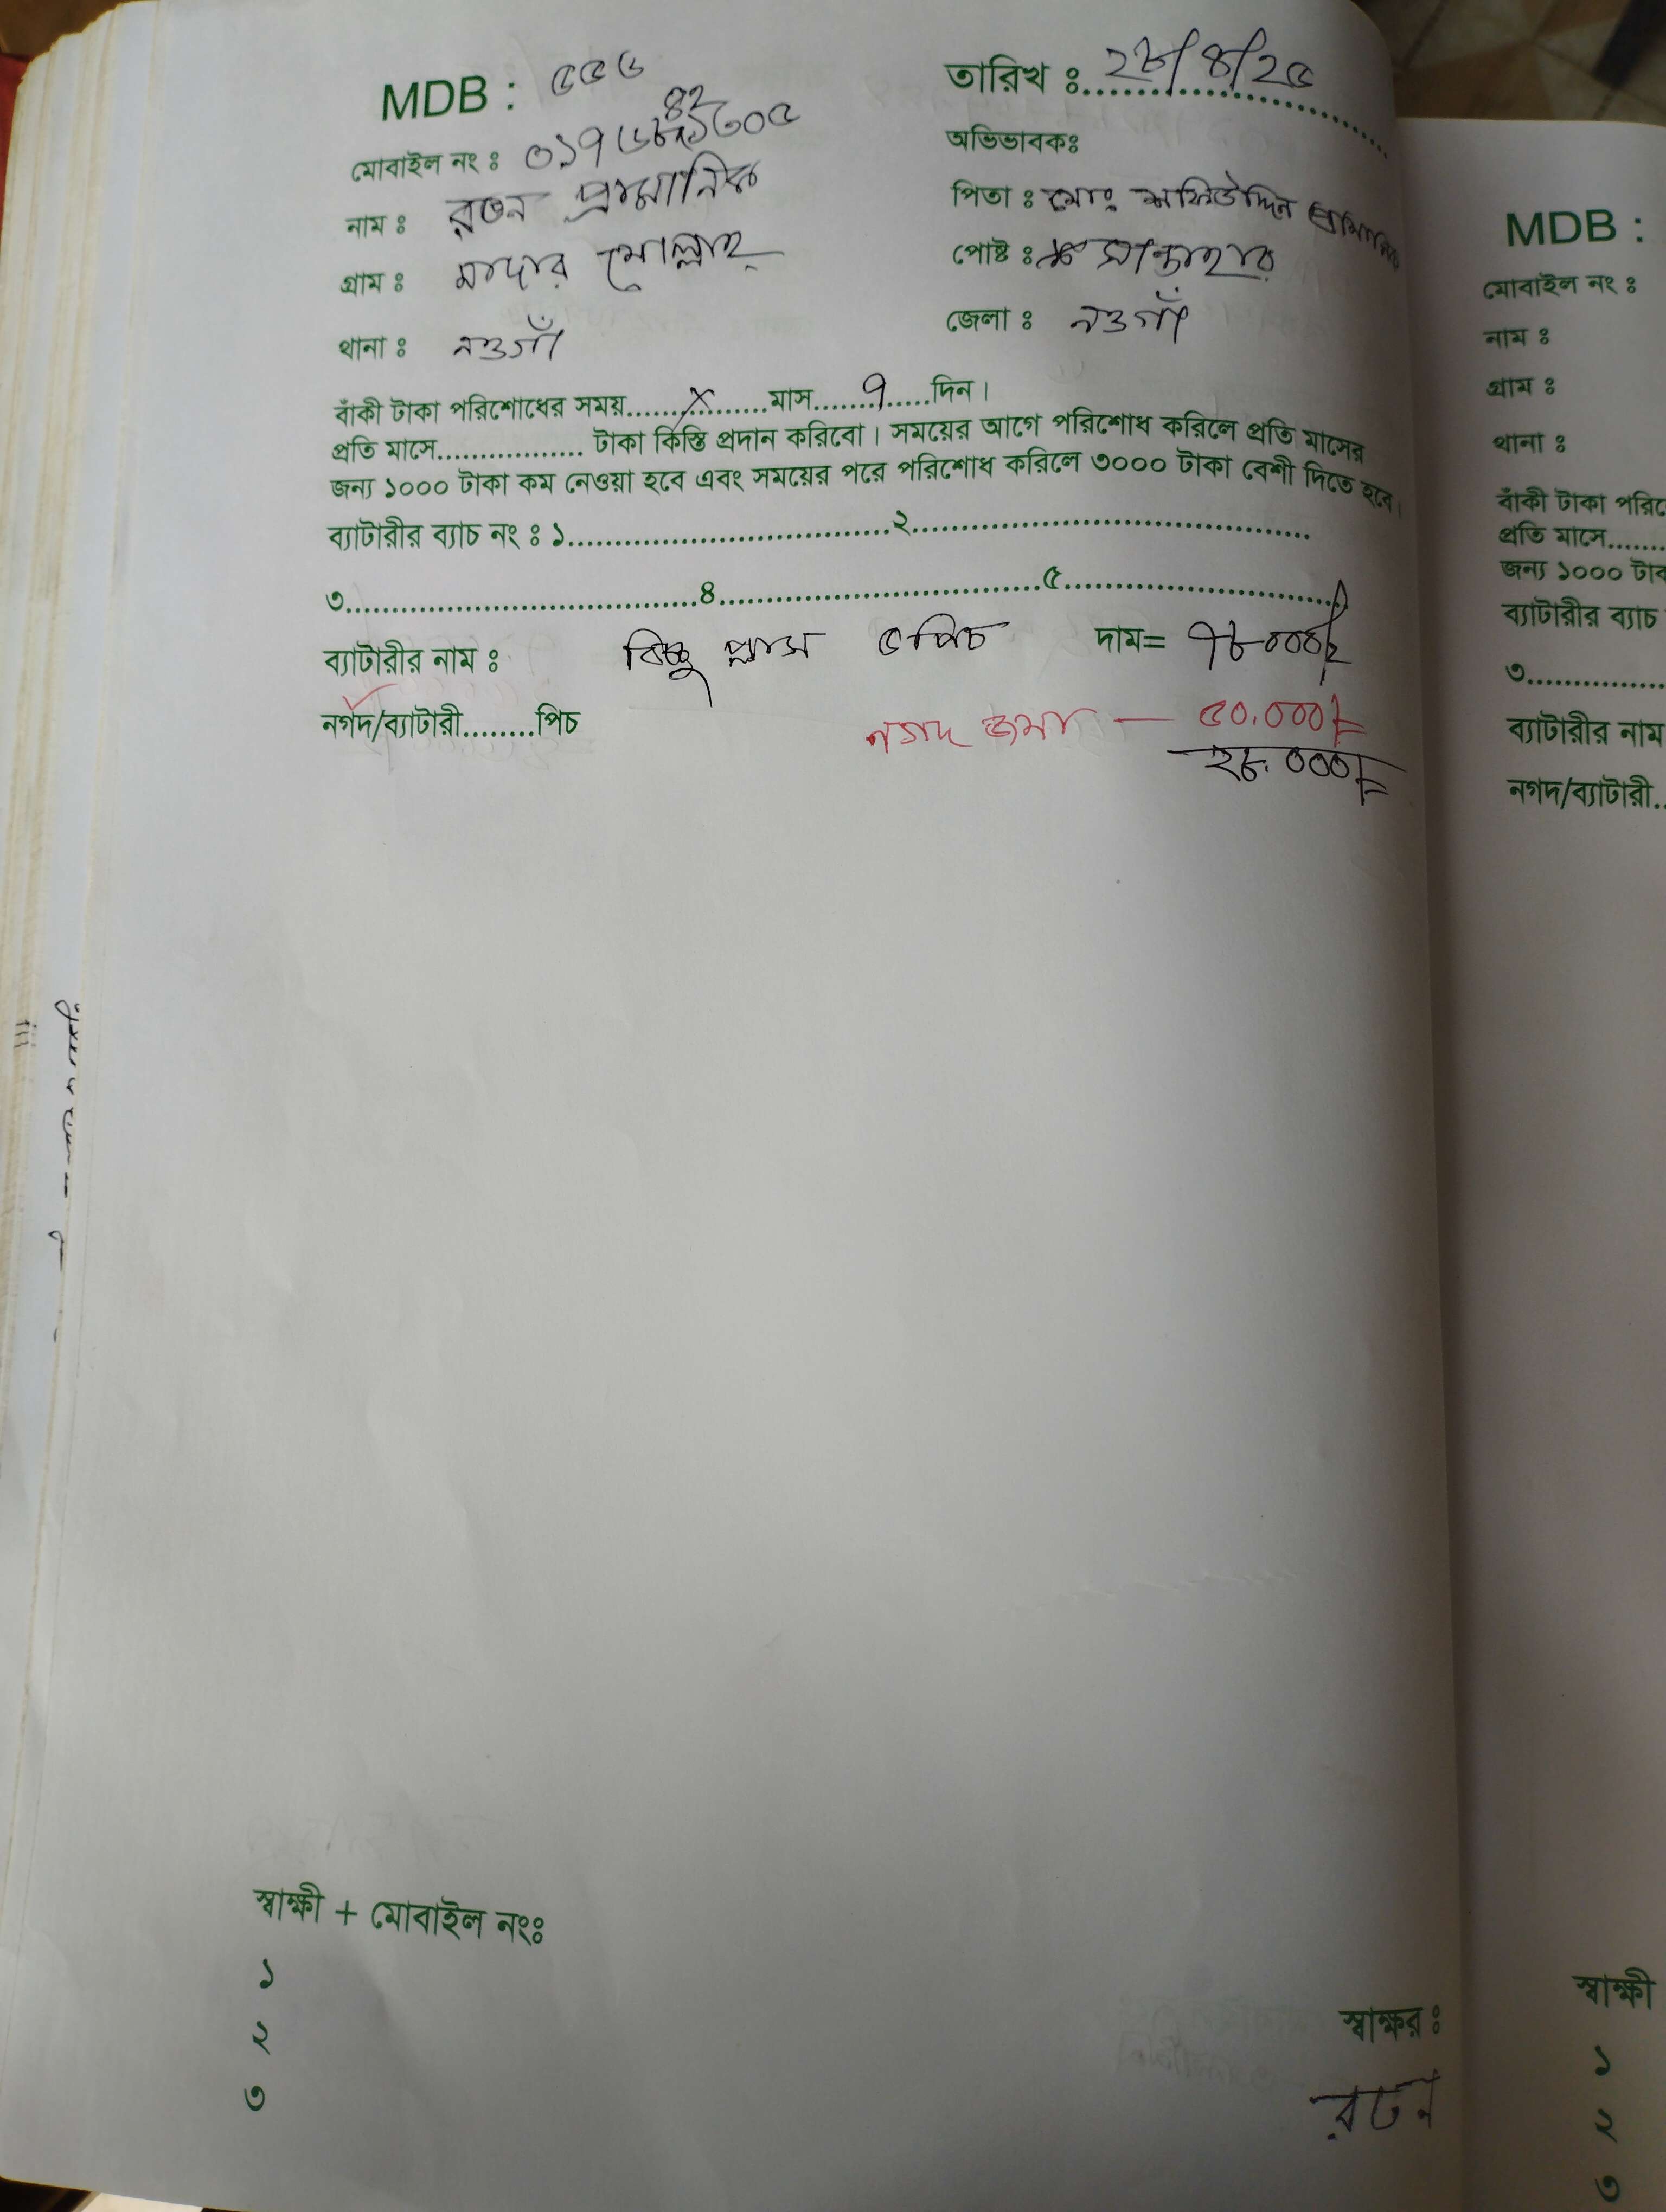 MDB : ৫৫৬
তারিখ ঃ ২৮/৪/২৫
মোবাইল নং ঃ
অভিভাবকঃ
নাম ঃ রতন প্রামানিক
পিতা ঃ মোঃ শফিউদ্দিন প্রামানিক
গ্রাম ঃ মাদার মোল্লাহ
পোষ্ট ঃ সান্তাহার
থানা ঃ নওগাঁ
জেলা ঃ নওগাঁ
বাঁকী টাকা পরিশোধের সময়.......X.......মাস.......৭.....দিন।
প্রতি মাসে................ টাকা কিস্তি প্রদান করিবো। সময়ের আগে পরিশোধ করিলে প্রতি মাসের
জন্য ১০০০ টাকা কম নেওয়া হবে এবং সময়ের পরে পরিশোধ করিলে ৩০০০ টাকা বেশী দিতে হবে।
ব্যাটারীর ব্যাচ নং ঃ ১..................................২..........................................
৩.....................................৪..................................৫..............................
ব্যাটারীর নাম ঃ বিষ্ণু প্লাস ৫ পিচ দাম= ৭৮০০০/=
নগদ/ব্যাটারী........পিচ
নগদ জমা — ৫০,০০০/=
২৮,০০০/=
স্বাক্ষী + মোবাইল নংঃ
১
২
৩
স্বাক্ষর ঃ
রতন
MDB :
মোবাইল নং ঃ
নাম ঃ
গ্রাম ঃ
থানা ঃ
বাঁকী টাকা
প্রতি মাসে.......
জন্য ১০০০
ব্যাটারীর ব্যাচ
৩................
ব্যাটারীর নাম
নগদ/ব্যাটারী..
স্বাক্ষী
১
২
৩